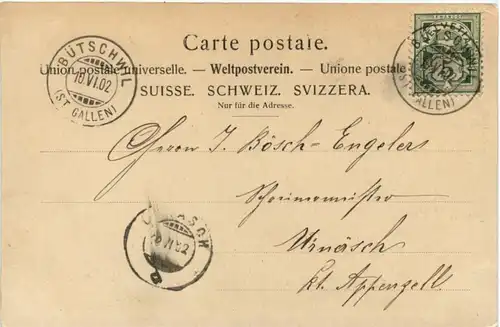 Carte postale.
Union postale universelle. — Weltpostverein. — Unione postale
SUISSE. SCHWEIZ. SVIZZERA.
Nur für die Adresse.
BÜTSCHWIL
10.VI.02
(ST. GALLEN)
HELVETIA
FRANCO
5
BÜTSCH
(ST. GALLEN)
Herrn J. Bösch-Engelers
Schreinermeister
Urnäsch
kt. Appenzell.
ASCH
VI.02